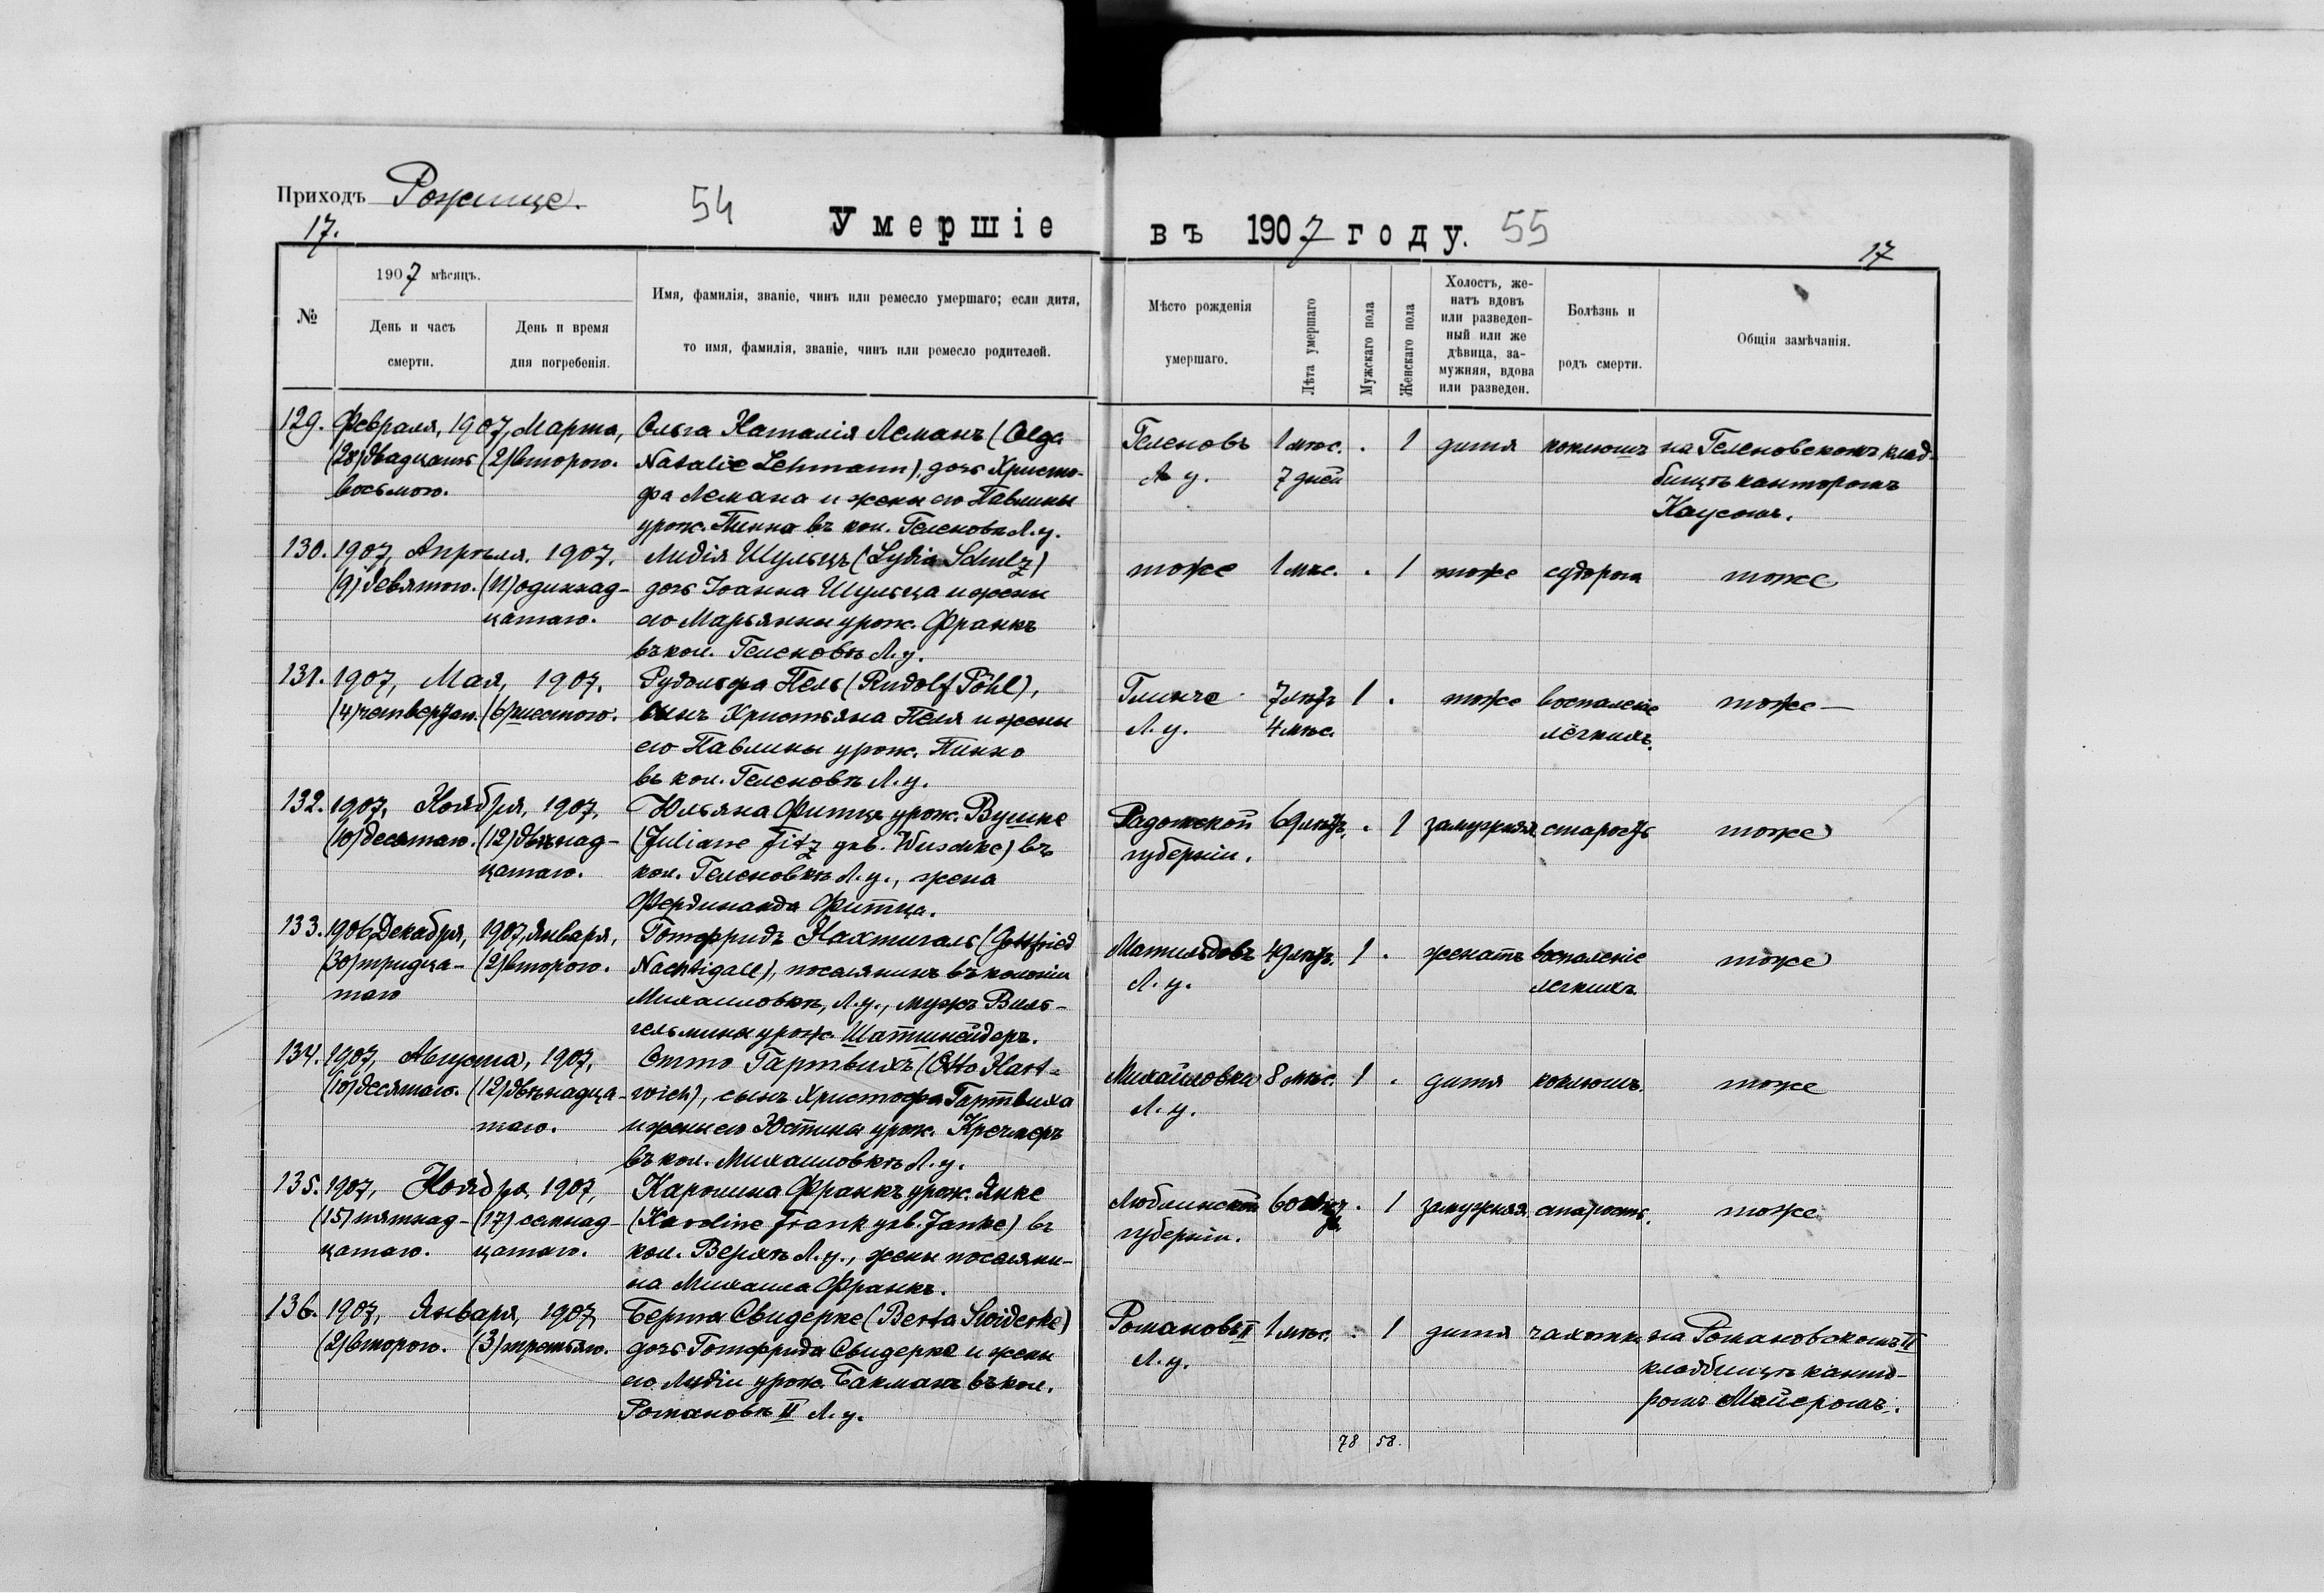 Приходъ Рожище.
54
17.
Умершіе
въ 1907 году.
55
17
№
1907 мѣсяцъ.
День и часъ
смерти.
День и время
дня погребенія.
Имя, фамилія, званіе, чинъ или ремесло умершаго; если дитя,
то имя, фамилія, званіе, чинъ или ремесло родителей.
Мѣсто рожденія
умершаго.
Лѣта умершаго
Мужскаго пола
Женскаго пола
Холостъ, же-
натъ вдовъ
или разведен-
ный или же
дѣвица, за-
мужняя, вдова
или разведен.
Болѣзнь и
родъ смерти.
Общія замѣчанія.
129. Февраля, 1907, Марта,
(28) двадцать (2) второго.
восьмого.
Ольга Наталія Леманъ (Olga
Natalie Lehmann), дочь Христо-
фа Лемана и жены его Павлины
урож. Пинно въ кол. Геленовкѣ Л.у.
Геленовъ 1 мѣс. . 1 дитя коклюшъ на Геленовскомъ клад-
Л у. 7 дней
бищѣ канторомъ
Каусомъ.
130. 1907, Апрѣля. 1907.
(9) девятого. (11) одиннад-
цатаго.
Лидія Шульцъ (Lydia Schulz)
дочь Іоанна Шульца и жены
его Марьянны урож. Франкъ
въ кол. Геленовкѣ Л.у.
тоже 1 мѣс. . 1 тоже судорога тоже
131. 1907, Мая, 1907.
(4) четвертаго. (6) шестого.
Рудольфа Пель (Rudolf Pöhl),
сынъ Христьяна Пеля и жены
его Павлины урож. Пинно
въ кол. Геленовкѣ Л.у.
Глинче 7 лѣтъ 1 . тоже воспаленіе тоже —
Л.у. 4 мѣс. лёгкихъ.
132. 1907, Ноября, 1907,
(10) десятаго. (12) двѣнад-
цатаго.
Юльяна Фитцъ урож. Вушке
(Juliane Fitz geb. Wuschke) въ
кол. Геленовкѣ Л.у., жена
Фердинанда Фитца.
Радомской 69 лѣтъ. . 1 замужняя старость тоже
губерніи.
133. 1906, Декабря, 1907, Января,
(30) тридца- (2) второго.
таго
Готфридъ Нахтигаль (Gottfried
Nachtigall), поселянинъ въ колоніи
Михаиловкѣ, Л.у., мужъ Виль-
гельмины урож. Шатшнейдеръ.
Матильдовъ 49 лѣтъ. 1 . женатъ воспаленіе тоже
Л.у. легкихъ
134. 1907, Августа, 1907,
(10) десятаго. (12) двѣнадца-
таго.
Отто Гартвихъ (Otto Hart-
wich), сынъ Христофа Гартвиха
и жены его Юстины урож. Кречмеръ
въ кол. Михаиловкѣ Л.у.
Михайловка 8 мѣс. 1 . дитя коклюшъ. тоже
Л.у.
135. 1907, Ноября, 1907,
(15) пятнад- (17) семнад-
цатаго. цатаго.
Каролина Франкъ урож. Янке
(Karoline Frank geb. Janke) въ
кол. Верхѣ Л.у., жены поселяни-
на Михаила Франкъ.
Люблинской 60 лѣтъ. . 1 замужняя старость. тоже
губерніи.
136. 1907, Января, 1907,
(2) второго. (3) третьяго.
Берта Свидерке (Berta Swiderke)
дочь Готфрида Свидерке и жены
его Лидіи урож. Бакманъ въ кол.
Романовкѣ II Л.у.
Романовъ II 1 мѣс. . 1 дитя чахотка на Романовскомъ II
Л.у.
кладбищѣ канто-
ромъ Майеромъ.
78 58.